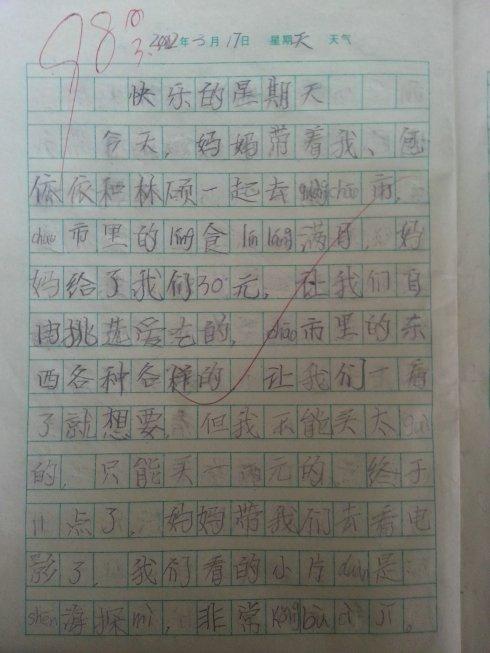 98
2012年3月17日 星期天 天气
快乐的星期天
今天,妈妈带着我、包
依依和林硕一起去guàng chāo市,
chāo市里的líng食lín láng满目,妈
妈给了我们30元,让我们自
由挑选爱吃的,chāo市里的东
西各种各样的,让我们一看
了就想要,但我不能买太guì
的,只能买一两元的,终于
11点了,妈妈带我们去看电
影了,我们看的小片duàn是
shēn海探mì,非常kǒng bù cì jī。